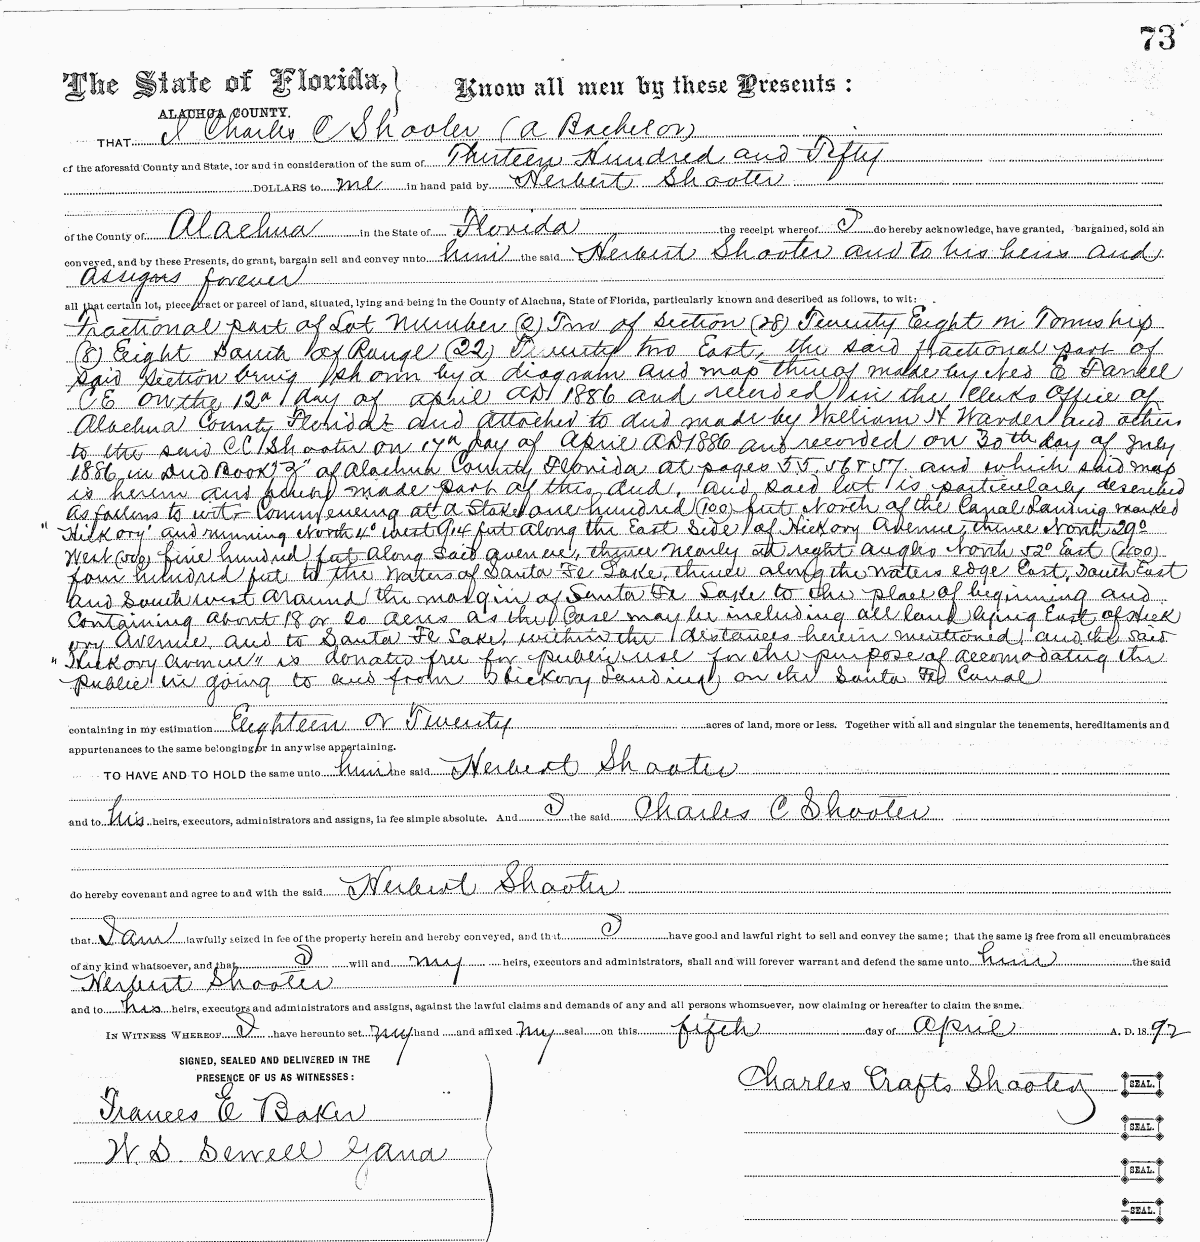 73
The State of Florida, Know all men by these Presents :
ALACHUA COUNTY.
THAT I Charles C Shooter (a Bachelor)
of the aforesaid County and State, for and in consideration of the sum of Thirteen Hundred and Fifty
DOLLARS to me in hand paid by Herbert Shooter
of the County of Alachua in the State of Florida the receipt whereof I do hereby acknowledge, have granted, bargained, sold an
conveyed, and by these Presents, do grant, bargain sell and convey unto him the said Herbert Shooter and to his heirs and
Assigns forever
all that certain lot, piece tract or parcel of land, situated, lying and being in the County of Alachua, State of Florida, particularly known and described as follows, to wit:
A
Fractional part of Lot Number (2) Two of Section (28) Twenty Eight in Township
(8) Eight South of Range (22) Twenty two East, the said fractional part of
said Section being shown by a diagram and map thereof made by Ned E Farrell
C E on the 12th day of April AD 1886 and recorded in the Clerks Office of
Alachua County Florida and attached to deed made by William H Warder and others
to the said C C Shooter on 17th day of April AD 1886 and recorded on 30th day of July
1886 in Deed Book "Z" of Alachua County Florida at pages 55. 56 & 57 and which said map
is herein and made part of this deed, and said lot is particularly described
as follows to wit Commencing at a Stake one hundred (100) feet North of the Canal Landing marked
"Hickory" and running North 4° West 914 feet along the East Side of Hickory Avenue, thence North 29°
West (500) five hundred feet along said avenue, thence nearly at right angles North 52° East (400)
four hundred feet to the Waters of Santa Fe Lake, thence along the waters edge East, South East
and Southwest around the margin of Santa Fe Lake to the place of beginning and
Containing about 18 or 20 acres as the Case may be including all land lying East of Hick
ory Avenue and to Santa Fe Lake, within the distances herein mentioned, and the said
"Hickory Avenue" is donated free for public use for the purpose of accomodating the
public in going to and from Hickory Landing on the Santa Fe Canal
containing in my estimation Eighteen or Twenty acres of land, more or less. Together with all and singular the tenements, hereditaments and
appurtenances to the same belonging or in anywise appertaining.
TO HAVE AND TO HOLD the same unto him the said Herbert Shooter
and to his heirs, executors, administrators and assigns, in fee simple absolute. And I the said Charles C Shooter
do hereby covenant and agree to and with the said Herbert Shooter
that I am lawfully seized in fee of the property herein and hereby conveyed, and that I have good and lawful right to sell and convey the same; that the same is free from all encumbrances
of any kind whatsoever, and that I will and my heirs, executors and administrators, shall and will forever warrant and defend the same unto him the said
Herbert Shooter
and to his heirs, executors and administrators and assigns, against the lawful claims and demands of any and all persons whomsoever, now claiming or hereafter to claim the same.
IN WITNESS WHEREOF I have hereunto set my hand and affixed my seal on this fifth day of April A. D. 1892
SIGNED, SEALED AND DELIVERED IN THE
PRESENCE OF US AS WITNESSES :
Charles Crafts Shooter SEAL.
Frances E Baker
SEAL.
W. S. Sewell
SEAL.
SEAL.